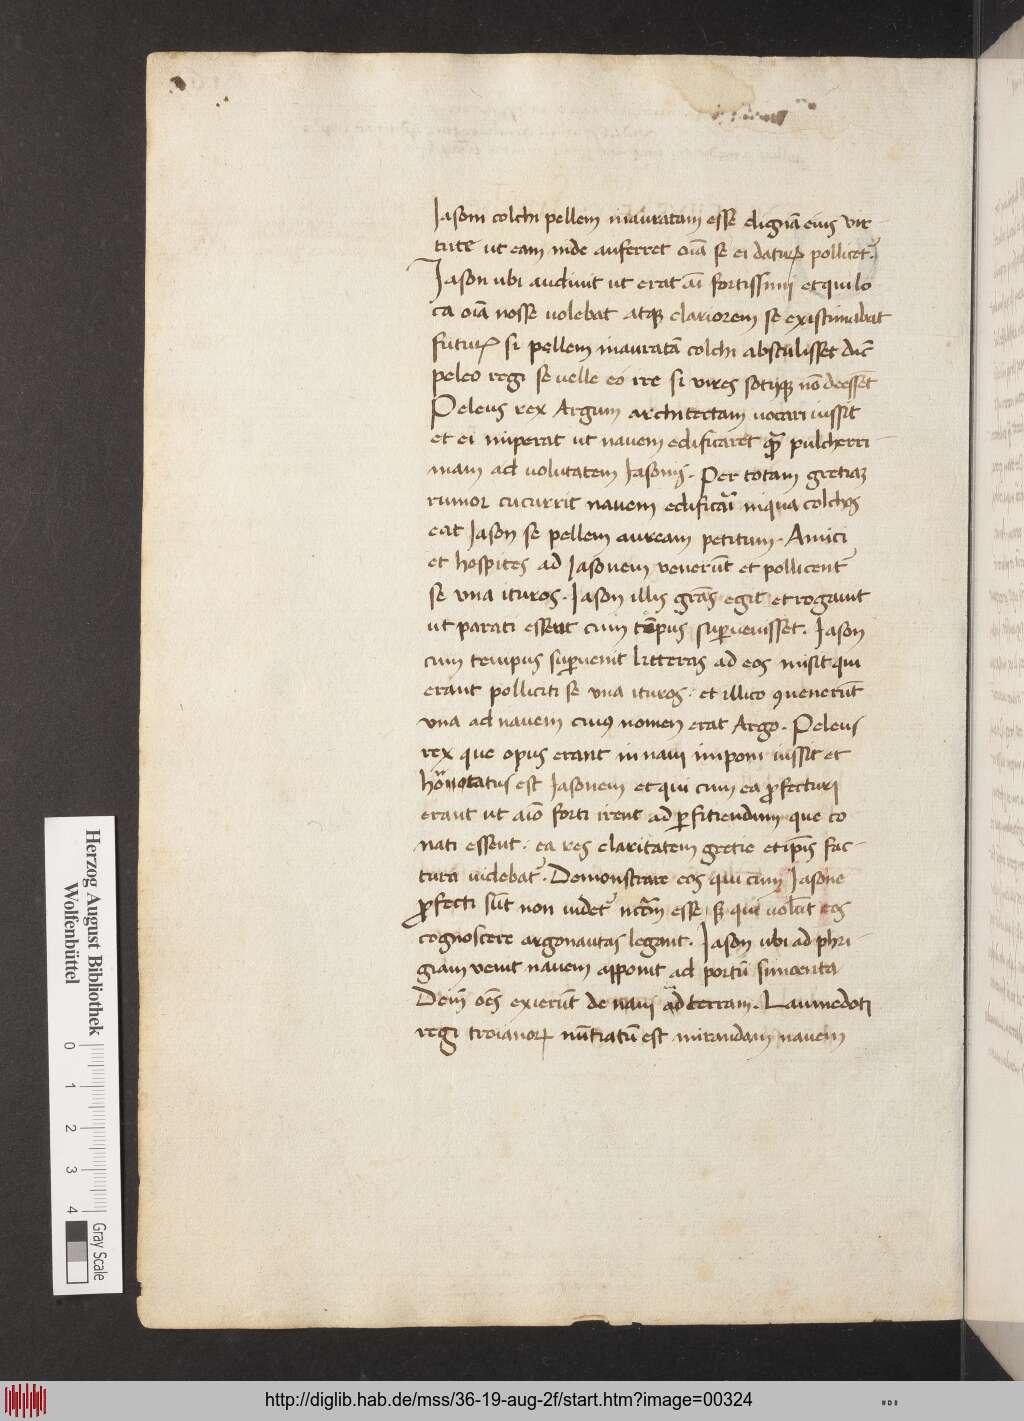 Iasoni colchi pellem inauratam esse dignā eius vir
tute ut eam inde auferret oīa se ei daturꝝ pollicet᷒
Iason ubi audiuit ut erat aī fortissimi et qui lo
ca oīa nosse uolebat atqꝫ clariorem se existimabat
futurꝝ si pellem inauratā colchi abstulisset dic̄
peleo regi se uelle eo ire si vires sotijqꝫ nō deessēt
Peleus rex Argum architectam uocari iussit
et ei imperat ut nauem edificaret qꝫ̄ pulcherri
mam ad uolutatem Iasonis. Per totam gretiaꝫ
rumor cucurrit nauem edificāi in qua colchos
eat Iason se pellem auream petitum. Amici
et hospites ad Iasonem venerūt et pollicent᷒
se vna ituros. Iason illis grās egit et rogauit
ut parati essent cum tēpus suꝑuenisset. Iason
cum tempus suꝑuenit litteras ad eos misit qui
erant polliciti se vna ituros: et illico ꝯuenerūt
vna ad nauem cuius nomen erat Argo. Peleus
rex que opus erant in naui imponi iussit et
hōrtatus est Iasonem et qui cum ea ꝓfecturi
erant ut aīo forti irent ad ꝑfitiendum que co
nati essent: ea res claritatem gretie et ip̄is fac
tura uidebat᷒. Demonstrare eos qui cum Iasone
ꝓfecti sūt non uidet᷒ nr̄m esse sꝫ qui uolēt eos
cognoscere argonautas legant. Iason ubi ad phri
giam venit nauem apponit ad portū simoenta
Dein̄ oēs exierūt de naui ad terram. Laumedoti
regi troianorꝝ nūtiatū est mirandam nauem
Herzog August Bibliothek
Wolfenbüttel
0 1 2 3 4
Gray Scale
http://diglib.hab.de/mss/36-19-aug-2f/start.htm?image=00324